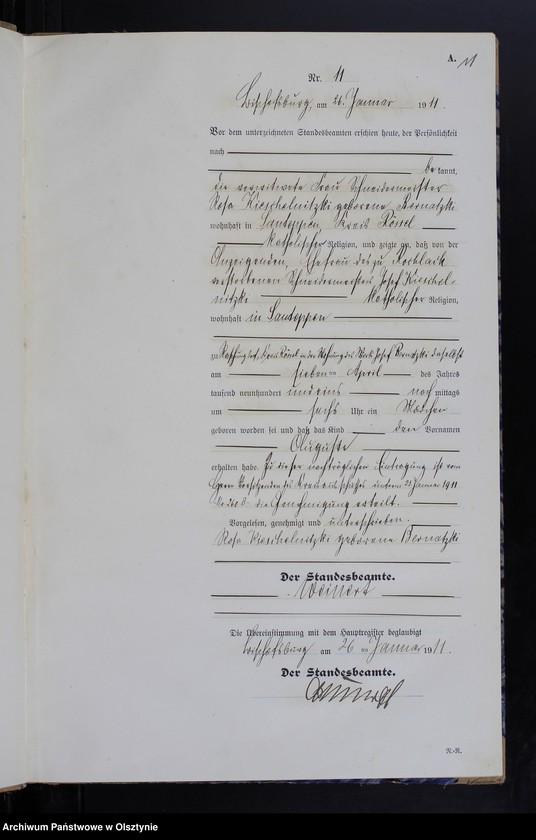 A. 11
Nr. 11
Bischofsburg, am 26. Januar 1911.
Vor dem unterzeichneten Standesbeamten erschien heute, der Persönlichkeit
nach
bekannt,
die verwitwete Frau Schneidermeister
Rosa Kieschelnitzki geborene Bernatzki
wohnhaft in Santoppen, Kreis Rössel
katholischer Religion, und zeigte an, daß von der
Anzeigenden, Ehefrau des zu
verstorbenen Schneidermeisters Josef Kieschel-
nitzki katholischer Religion,
wohnhaft in Santoppen
zu Kreis Rössel in der Wohnung des Josef Bernatzki daselbst
am sieben ten April des Jahres
tausend neunhundert und eins nach mittags
um sechs Uhr ein Mädchen
geboren worden sei und daß das Kind den Vornamen
Auguste
erhalten habe. Zu dieser nachträglichen Eintragung ist vom
Herrn Vorsitzenden des Kreisausschusses unterm 23. Januar 1911
die Genehmigung erteilt.
Vorgelesen, genehmigt und unterschrieben.
Rosa Kieschelnitzki geborene Bernatzki
Der Standesbeamte.
Weinert
Die Übereinstimmung mit dem Hauptregister beglaubigt
Bischofsburg am 26 ten Januar 1911.
Der Standesbeamte.
R.-R.
Archiwum Państwowe w Olsztynie